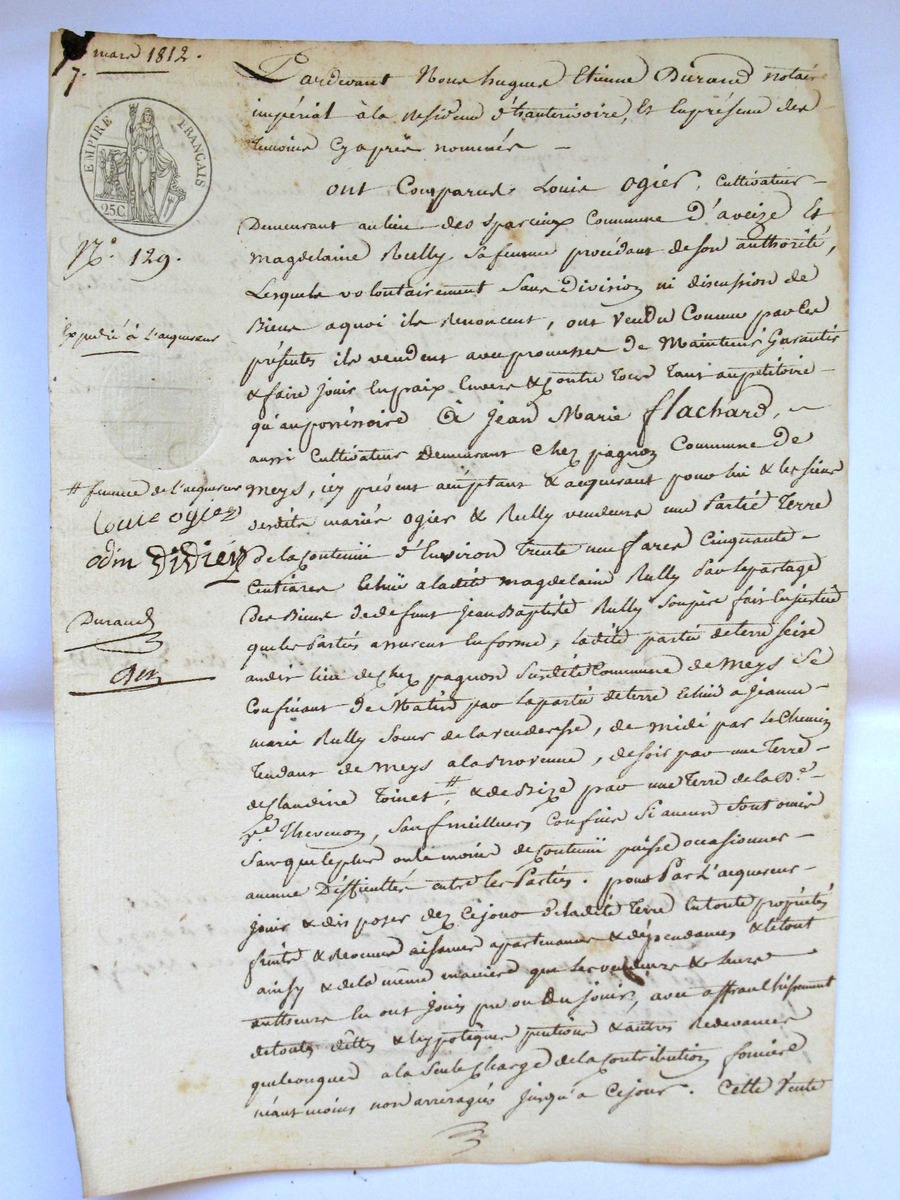 mars 1812.
7.
EMPIRE FRANÇAIS
25C.
N.º 129.
Expédié à l'acquereur
# femme de l'acquereur
Louis ogier
odm Didier
Durand
Pardevant Nous hugues Etienne Durand notaire
impérial à la Residence d'hauterivoire, Et En présence des
temoins Cy après nommés
ont Comparus Louis Ogier, Cultivateur
Demeurant au lieu des Commune d'aveize Et
magdelaine Rully sa femme procédant de son authorité,
Lesquels volontairement sans Division ni discussion de
Biens aquoi ils Renoncent, ont vendu Comme par les
présentes ils vendent avec promesse de Maintenir Garantir
& faire Jouir En paix Envers & Contre tous tant au pétitoire
qu'au possessoire à Jean Marie flachard,
aussi Cultivateur Demeurant Chez pagnon Commune de
Meys, icy présent acceptant & acquerant pour lui & les siens
desdits mariés Ogier & Rully vendeurs une Partie Terre
de la Contenue d'Environ Trente neuf ares Cinquante
Centiares Echue a ladite magdelaine Rully Par le partage
des Biens de defunt Jean Baptiste Rully son père fait
que les Parties assurent En forme, ladite partie de terre
audit lieu de Chez pagnon Susdite Commune de Meys se
Confinant de Matin par la partie de terre Echue a Jeanne
marie Rully soeur de la venderesse, de midi par le Chemin
Tendant de Meys a la, de soir par une Terre
de Claudine Toinet #, & de Bize par une Terre de la D.e
V.e Thevenon, sauf meilleurs Confins si aucuns sont omis
sans que le plus ou le moins de Contenue puisse occasionner
aucune Difficultés entre les Parties. pour Par l'acquereur
Jouir & disposer dez Ce jour de ladite Terre En toute propriétés
fruits & Revenus aisances apartenances & dépendances & le tout
ainsy & de la même maniere que les vendeurs & leurs
autheurs En ont Joui pu ou Du jouir, avec affranchissement
de toutes dettes & hypotèques pentions & autres Redevances
quelconques a la seule Charge de la Contribution fonciere
néant moins non arreragés Jusqu'à Ce jour. Cette Vente